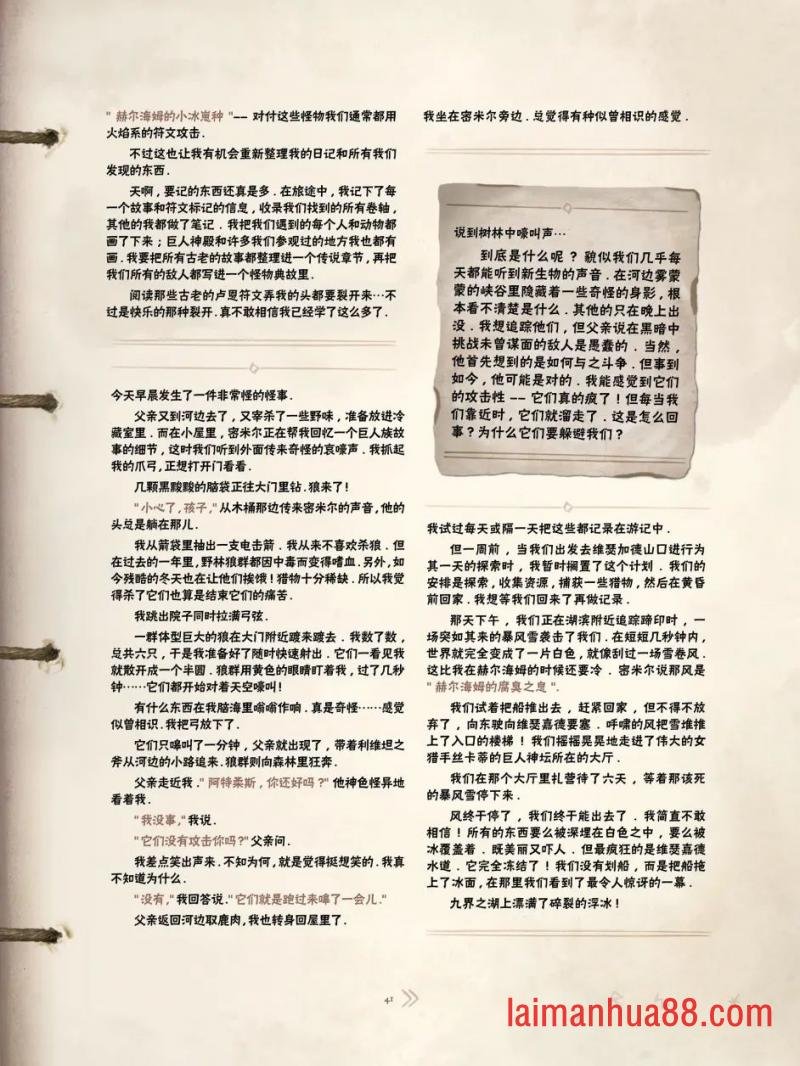 "赫尔海姆的小冰崽种"—— 对付这些怪物我们通常都用
火焰系的符文攻击.
不过这也让我有机会重新整理我的日记和所有我们
发现的东西.
天啊,要记的东西还真是多.在旅途中,我记下了每
一个故事和符文标记的信息,收录我们找到的所有卷轴,
其他的我都做了笔记.我把我们遇到的每个人和动物都
画了下来;巨人神殿和许多我们参观过的地方我也都有
画.我要把所有古老的故事都整理进一个传说章节,再把
我们所有的敌人都写进一个怪物典故里.
阅读那些古老的卢恩符文弄我的头都要裂开来…不
过是快乐的那种裂开.真不敢相信我已经学了这么多了.
今天早晨发生了一件非常怪的怪事.
父亲又到河边去了,又宰杀了一些野味,准备放进冷
藏室里.而在小屋里,密米尔正在帮我回忆一个巨人族故
事的细节,这时我们听到外面传来奇怪的哀嚎声.我抓起
我的爪弓,正想打开门看看.
几颗黑黢黢的脑袋正往大门里钻.狼来了!
"小心了,孩子,"从木桶那边传来密米尔的声音,他的
头总是躺在那儿.
我从箭袋里抽出一支电击箭.我从来不喜欢杀狼.但
在过去的一年里,野林狼群都因中毒而变得嗜血.另外,如
今残酷的冬天也在让他们挨饿!猎物十分稀缺.所以我觉
得杀了它们也算是结束它们的痛苦.
我跳出院子同时拉满弓弦.
一群体型巨大的狼在大门附近踱来踱去.我数了数,
总共六只,于是我准备好了随时快速射出.它们一看见我
就散开成一个半圆.狼群用黄色的眼睛盯着我,过了几秒
钟……它们都开始对着天空嚎叫!
有什么东西在我脑海里嗡嗡作响.真是奇怪……感觉
似曾相识.我把弓放下了.
它们只嗥叫了一分钟,父亲就出现了,带着利维坦之
斧从河边的小路追来.狼群则向森林里狂奔.
父亲走近我."阿特柔斯,你还好吗?"他神色怪异地
看着我.
"我没事,"我说.
"它们没有攻击你吗?"父亲问.
我差点笑出声来.不知为何,就是觉得挺想笑的.我真
不知道为什么.
"没有,"我回答说."它们就是跑过来嗥了一会儿."
父亲返回河边取鹿肉,我也转身回屋里了.
我坐在密米尔旁边.总觉得有种似曾相识的感觉.
说到树林中嚎叫声…
到底是什么呢?貌似我们几乎每
天都能听到新生物的声音.在河边雾蒙
蒙的峡谷里隐藏着一些奇怪的身影,根
本看不清楚是什么.其他的只在晚上出
没.我想追踪他们,但父亲说在黑暗中
挑战未曾谋面的敌人是愚蠢的.当然,
他首先想到的是如何与之斗争.但事到
如今,他可能是对的.我能感觉到它们
的攻击性——它们真的疯了!但每当我
们靠近时,它们就溜走了.这是怎么回
事?为什么它们要躲避我们?
我试过每天或隔一天把这些都记录在游记中.
但一周前,当我们出发去维瑟加德山口进行为
其一天的探索时,我暂时搁置了这个计划.我们的
安排是探索,收集资源,捕获一些猎物,然后在黄昏
前回家.我想等我们回来了再做记录.
那天下午,我们正在湖滨附近追踪蹄印时,一
场突如其来的暴风雪袭击了我们.在短短几秒钟内,
世界就完全变成了一片白色,就像刮过一场雪卷风.
这比我在赫尔海姆的时候还要冷.密米尔说那风是
"赫尔海姆的腐臭之息".
我们试着把船推出去,赶紧回家,但不得不放
弃了,向东驶向维瑟嘉德要塞.呼啸的风把雪堆推
上了入口的楼梯!我们摇摇晃晃地走进了伟大的女
猎手丝卡蒂的巨人神坛所在的大厅.
我们在那个大厅里扎营待了六天,等着那该死
的暴风雪停下来.
风终于停了,我们终于能出去了.我简直不敢
相信!所有的东西要么被深埋在白色之中,要么被
冰覆盖着.既美丽又吓人.但最疯狂的是维瑟嘉德
水道.它完全冻结了!我们没有划船,而是把船拖
上了冰面,在那里我们看到了最令人惊讶的一幕.
九界之湖上漂满了碎裂的浮冰!
41
laimanhua88.com